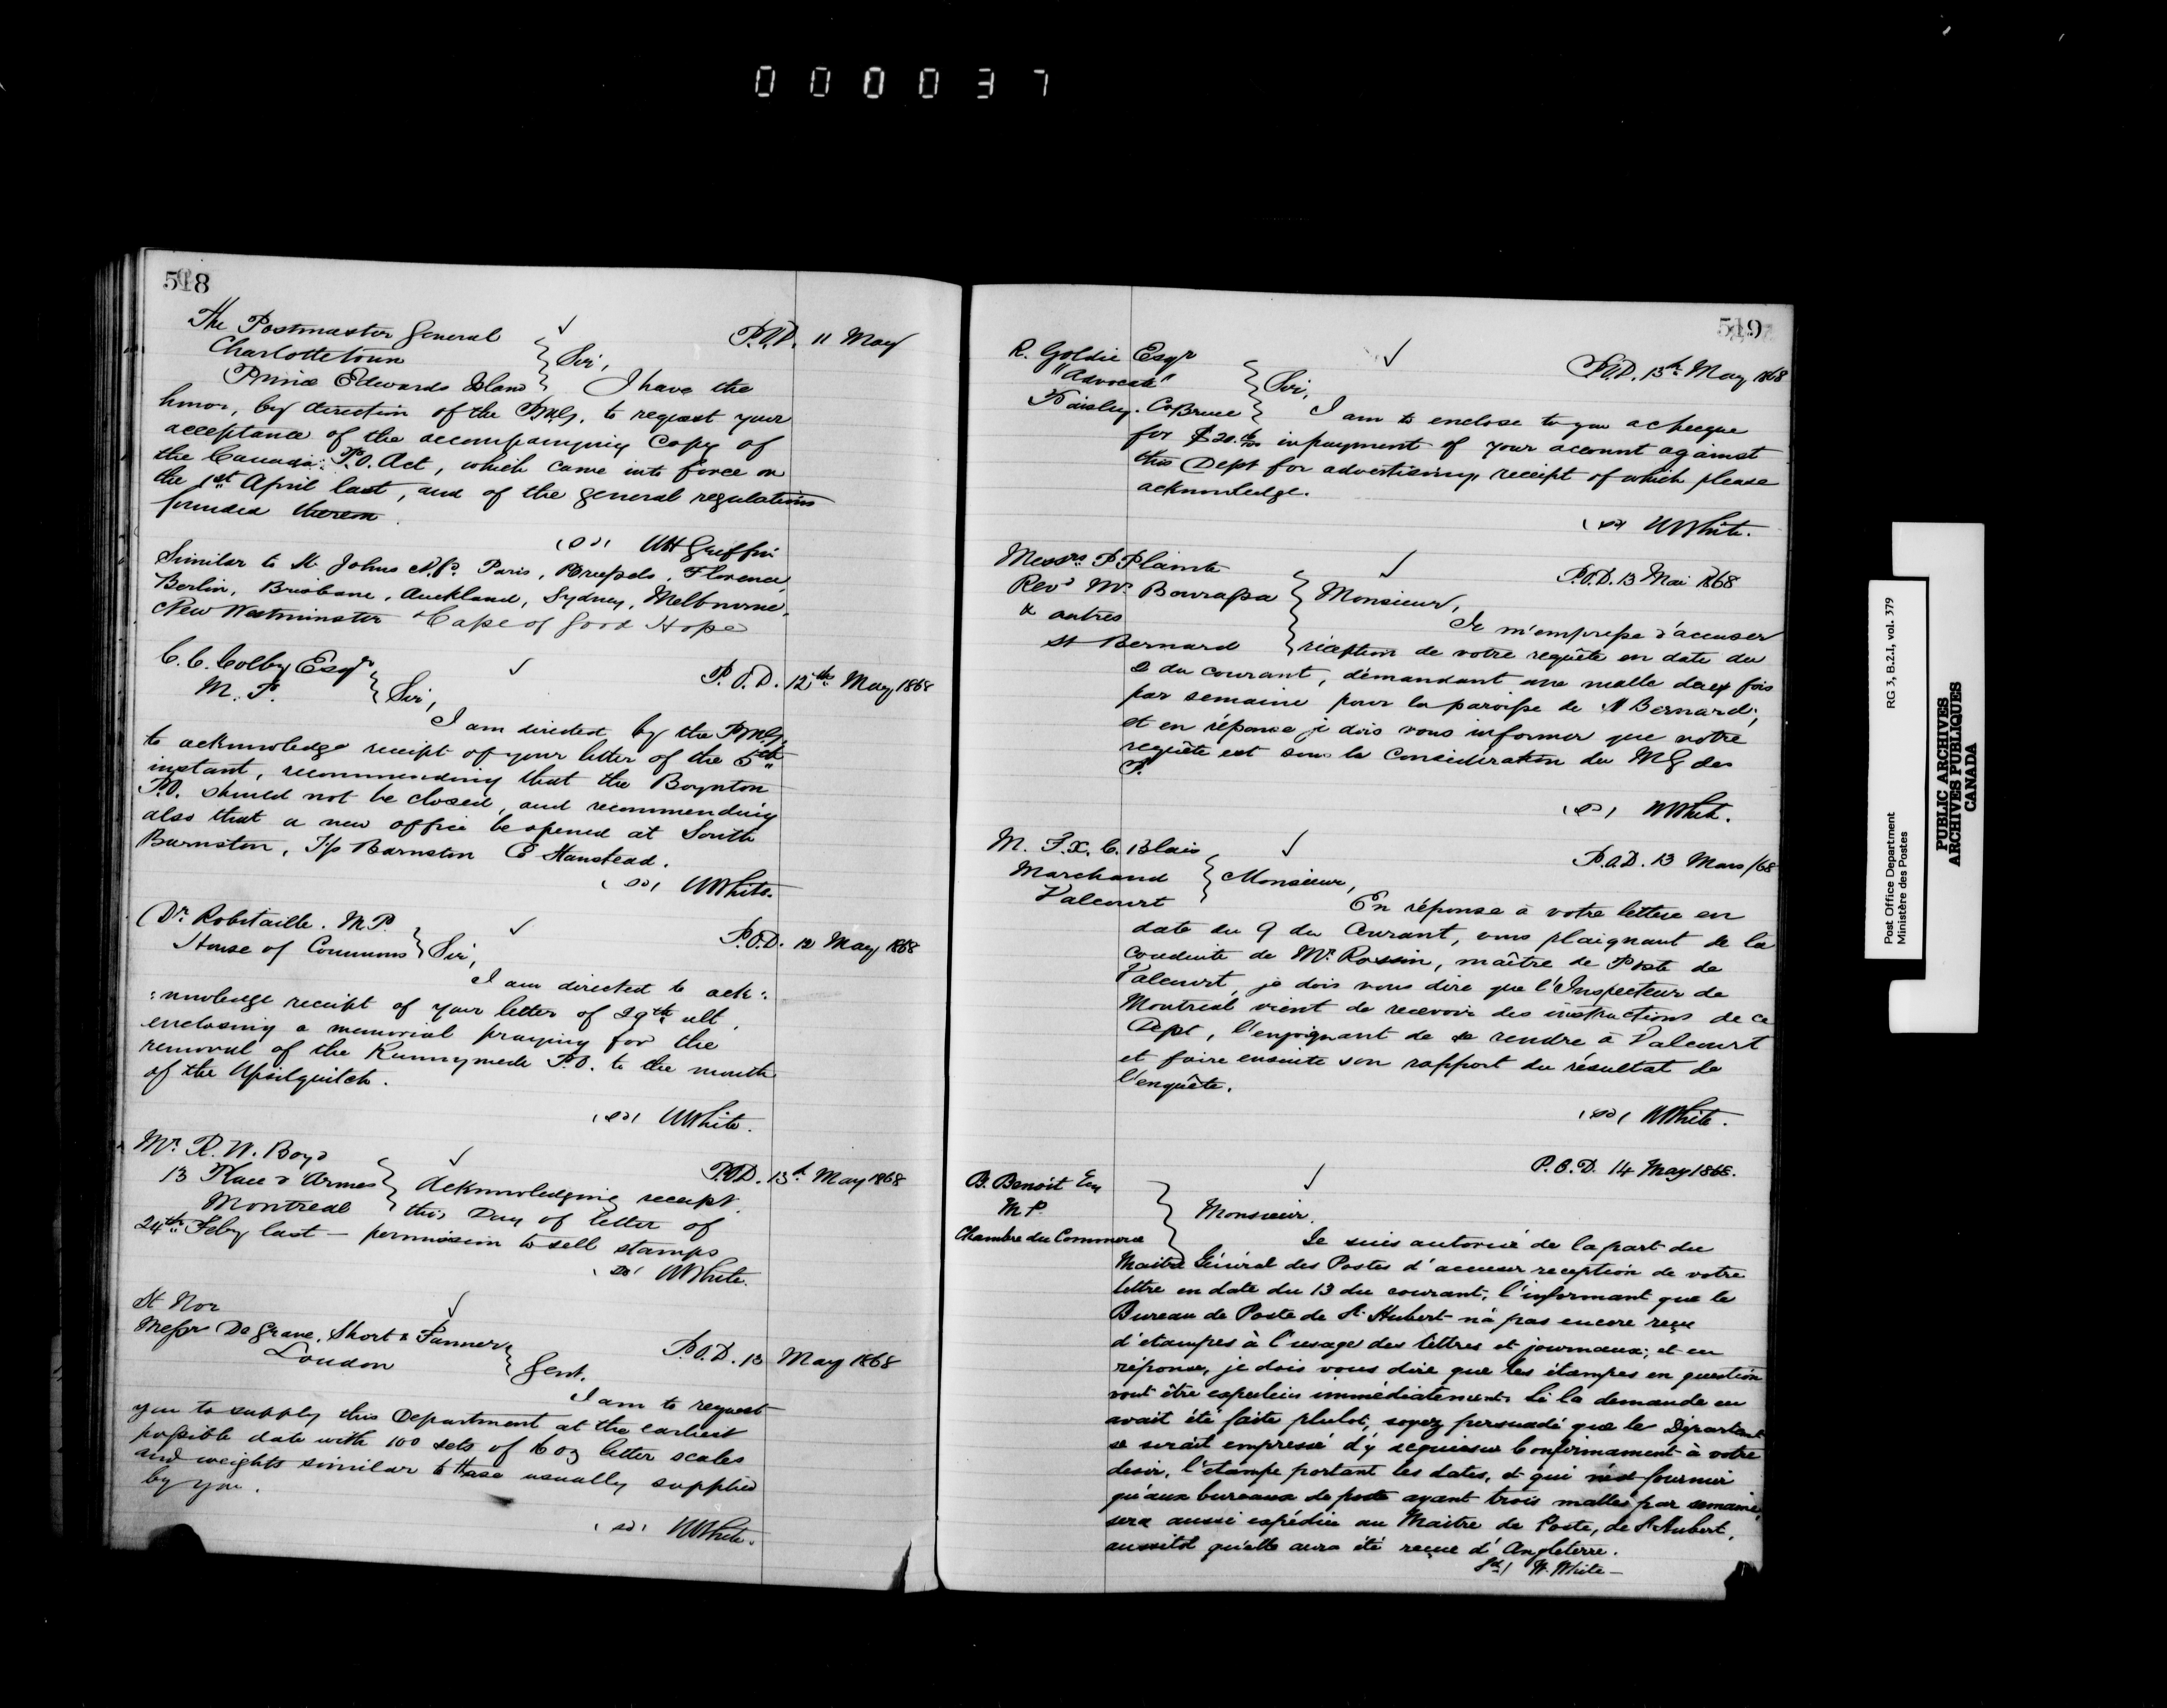 000037
518
The Postmaster General
Charlottetown
Prince Edwards Island
P.O.D. 11 May
Sir,
I have the
honor, by direction of the PMG. to request your
acceptance of the accompanying Copy of
the Canada P.O. Act, which came into force on
the 1st April last, and of the general regulations
founded thereon.
(sd) WH Griffin
Similar to St. Johns N.F. Paris, Brussels, Florence,
Berlin, Brisbane, Auckland, Sydney, Melbourne,
New Westminster & Cape of Good Hope
C. C. Colby Esqr
M.P.
P.O.D. 12th May 1868
Sir,
I am directed by the PMG.
to acknowledge receipt of your letter of the 5th
instant, recommending that the Boynton
P.O. should not be closed, and recommending
also that a new office be opened at South
Barnston, T/p Barnston Co Stanstead.
(sd) WWhite.
Dr. Robitaille. M.P.
House of Commons
P.O.D. 12 May 1868
Sir,
I am directed to ack:
:nowledge receipt of your letter of 29th ult.
enclosing a memorial praying for the
removal of the Runnymede P.O. to the mouth
of the Upsilquitch.
(sd) WWhite.
Mr. R. W. Boyd
13 Place d'Armes
Montreal
P.O.D. 13th May 1868
Acknowledging receipt
this Day of letter of
24th Feby last — permission to sell stamps
(sd) WWhite.
St Nor
Messrs De Grave, Short & Fanner
London
P.O.D. 13 May 1868
Gent.
I am to request
you to supply this Department at the earliest
possible date with 100 sets of 16 oz letter scales
and weights similar to those usually supplied
by you.
(sd) WWhite.
519
R. Goldie Esqr
"Advocate"
Paisley. Co Bruce
P.O.D. 13th May 1868
Sir,
I am to enclose to you a cheque
for $20. in payment of your account against
this Dept for advertising, receipt of which please
acknowledge.
(sd) WWhite.
Messrs P Plainte
Revd Mr. Bourassa
& autres
St Bernard
P.O.D. 13 Mai 1868
Monsieur,
Je m'empresse d'accuser
réception de votre requête en date du
2 du courant, démandant une malle deux fois
par semaine pour la paroisse de St Bernard;
et en réponse je dois vous informer que notre
requête est sous la consideration du MG des
P.
(sd) WWhite.
M. F.X. C. Blais
Marchand
Valcourt
P.O.D. 13 Mars/68
Monsieur,
En réponse à votre lettre en
date du 9 du courant, vous plaignant de la
conduite de Mr. Rossin, maître de Poste de
Valcourt, je dois vous dire que l'Inspecteur de
Montreal vient de recevoir des instructions de ce
Dept, l'enjoignant de se rendre à Valcourt
et faire ensuite son rapport du résultat de
l'enquête.
(sd) WWhite.
P.O.D. 14 May 1868.
B. Benoit Esq
M P.
Chambre du Commerce
Monsieur.
Je suis autorisé de la part du
Maitre Géneral des Postes d'accuser reception de votre
lettre en date du 13 du courant, l'informant que le
Bureau de Poste de St. Hubert n'a pas encore reçu
d'etampes à l'usage des lettres et journaux; et en
réponse, je dois vous dire que les étampes en question
vont être expediées immédiatement. Si la demande en
avait été faite plutot, soyez persuadé que le Départent
se serait empressé d'y acquiesser Confirmament à votre
desir, l'étampe portant les dates, et qui n'est fournier
qu'aux bureaux de poste ayant trois malles par semaine,
sera aussi expédiée au Maitre de Poste, de St Hubert,
aussitot qu'elle aura été reçue d'Angleterre.
Sd/ W. White —
Post Office Department
Ministère des Postes
RG 3, B.2.1, vol. 379
PUBLIC ARCHIVES
ARCHIVES PUBLIQUES
CANADA